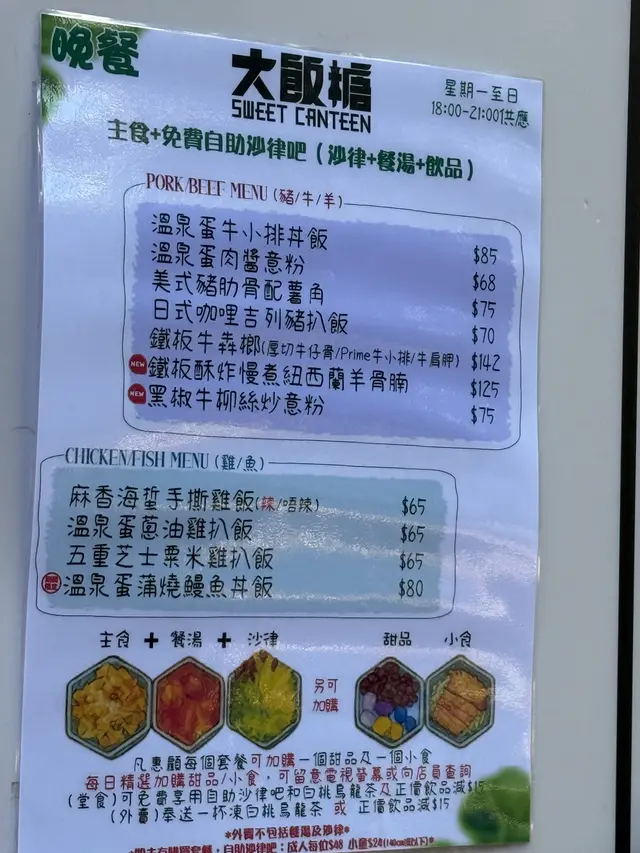 晚餐
大飯糖
SWEET CANTEEN
星期一至日
18:00-21:00供應
主食+免費自助沙律吧（沙律+餐湯+飲品）
PORK/BEEF MENU (豬/牛/羊)
溫泉蛋牛小排丼飯 $85
溫泉蛋肉醬意粉 $68
美式豬肋骨配薯角 $75
日式咖哩吉列豬扒飯 $70
鐵板牛犇鄉(厚切牛仔骨/Prime牛小排/牛肩胛) $142
NEW 鐵板酥炸慢煮紐西蘭羊骨腩 $125
NEW 黑椒牛柳絲炒意粉 $75
CHICKEN/FISH MENU (雞/魚)
麻香海蜇手撕雞飯(辣/唔辣) $65
溫泉蛋蔥油雞扒飯 $65
五重芝士粟米雞扒飯 $65
溫泉蛋蒲燒鰻魚丼飯 $80
主食 + 餐湯 + 沙律 甜品 小食
另可
加購
凡惠顧每個套餐可加購一個甜品及一個小食
每日精選加購甜品/小食，可留意電視螢幕或向店員查詢
(堂食)可免費享用自助沙律吧和白桃烏龍茶及正價飲品減$15
(外賣)奉送一杯凍白桃烏龍茶 或 正價飲品減$15
*外賣不包括餐湯及沙律*
自助沙律吧：成人每位$48 小童$24(140cm或以下)*